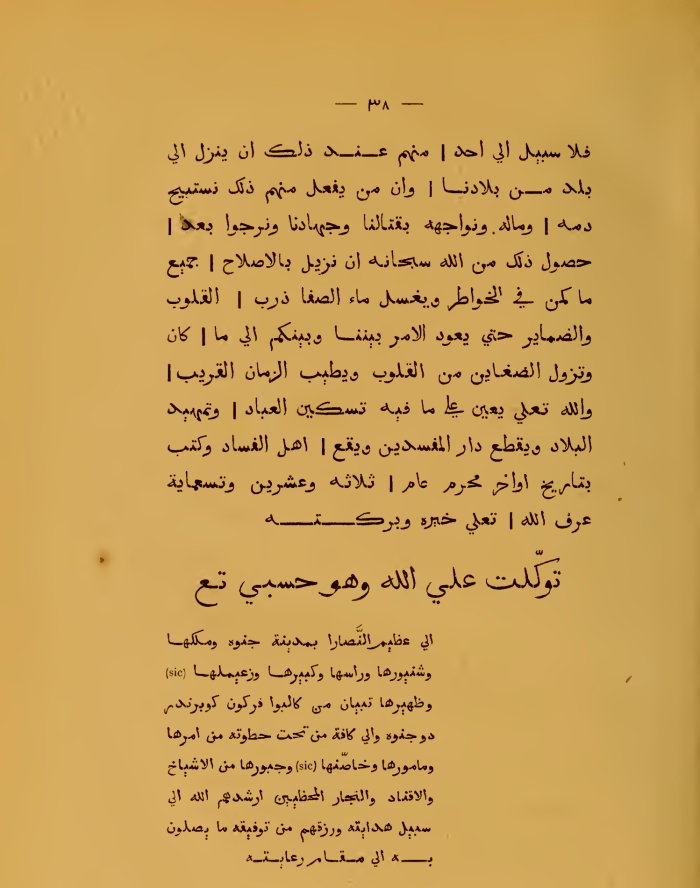 — ٣٨ —
فلا سبيل الي احد | منهم عند ذلك ان ينزل الي
بلد من بلادنا | وان من يفعل منهم ذلك نستبيح
دمه | وماله ونواجهه بقتالنا وجهادنا ونرجوا بعد |
حصول ذلك من الله سبحانه ان نزيل بالاصلاح | جميع
ما كمن في الخواطر ويغسل ماء الصفا ذرب | القلوب
والضماير حتي يعود الامر بيننا وبينكم الي ما | كان
وتزول الضغاين من القلوب ويطيب الزمان القريب |
والله تعلي يعين علي ما فيه تسكين العباد | وتمهيد
البلاد ويقطع دار المفسدين ويقع | اهل الفساد وكتب
بتاريخ اواخر محرم عام | ثلاثه وعشرين وتسعماية
عرف الله | تعلي خيره وبركته
توكّلت علي الله وهو حسبي تع
الي عظيم النَّصارا بمدينة جنوه وملكها
وشنيورها وراسها وكبيرها وزعيملها (sic)
وظهيرها تبيان من كالبوا فركون كوبرندر
دو جنوه والي كافة من تحت حطوته من امرها
ومامورها وخاصّتها (sic) وجبورها من الاشياخ
والاقناد والتجار المحظيين ارشدهم الله الي
سبيل هدايته ورزقهم من توفيقه ما يصلون
به الي مقام رعايته